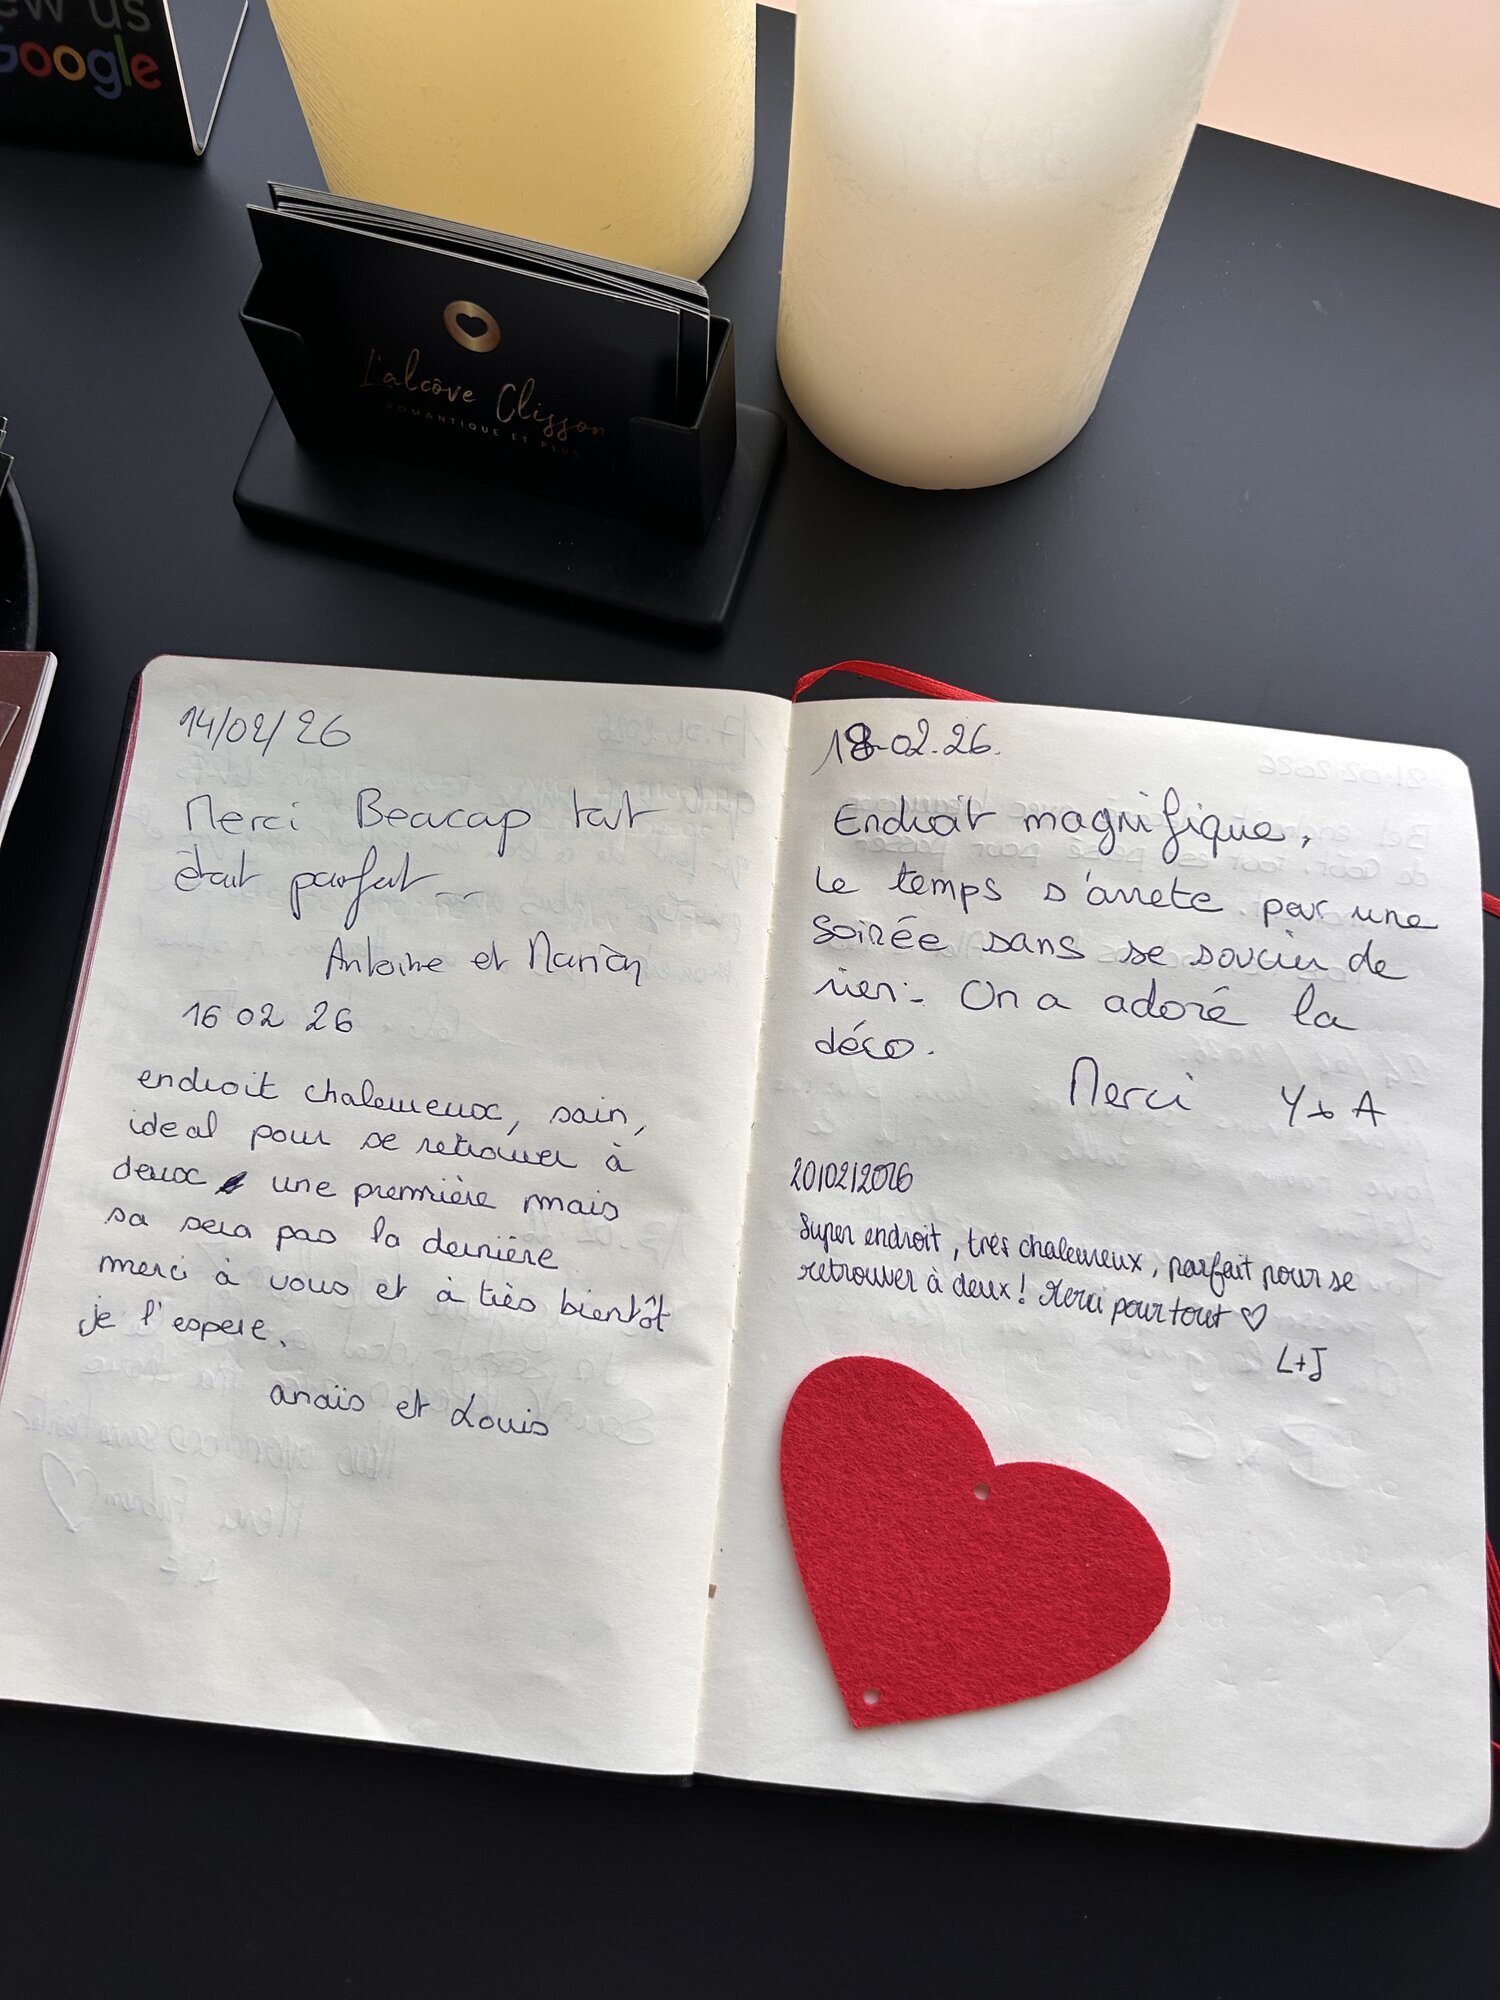 ew us
Google
L'alcôve Clisson
ROMANTIQUE ET PLUS
14/02/26
Merci Beaucoup tout
était parfait
Antoine et Manon
16 02 26
endroit chaleureux, sain,
ideal pour se retrouver à
deux une première mais
sa sera pas la dernière
merci à vous et à très bientôt
je l'espere.
anaïs et Louis
18-02.26.
Endroit magnifique,
le temps s'arrete par une
Soirée sans se soucier de
rien. On a adoré la
déco.
Merci Y & A
20/02/2026
Super endroit, très chaleureux, parfait pour se
retrouver à deux! Merci pour tout ♡
L+J